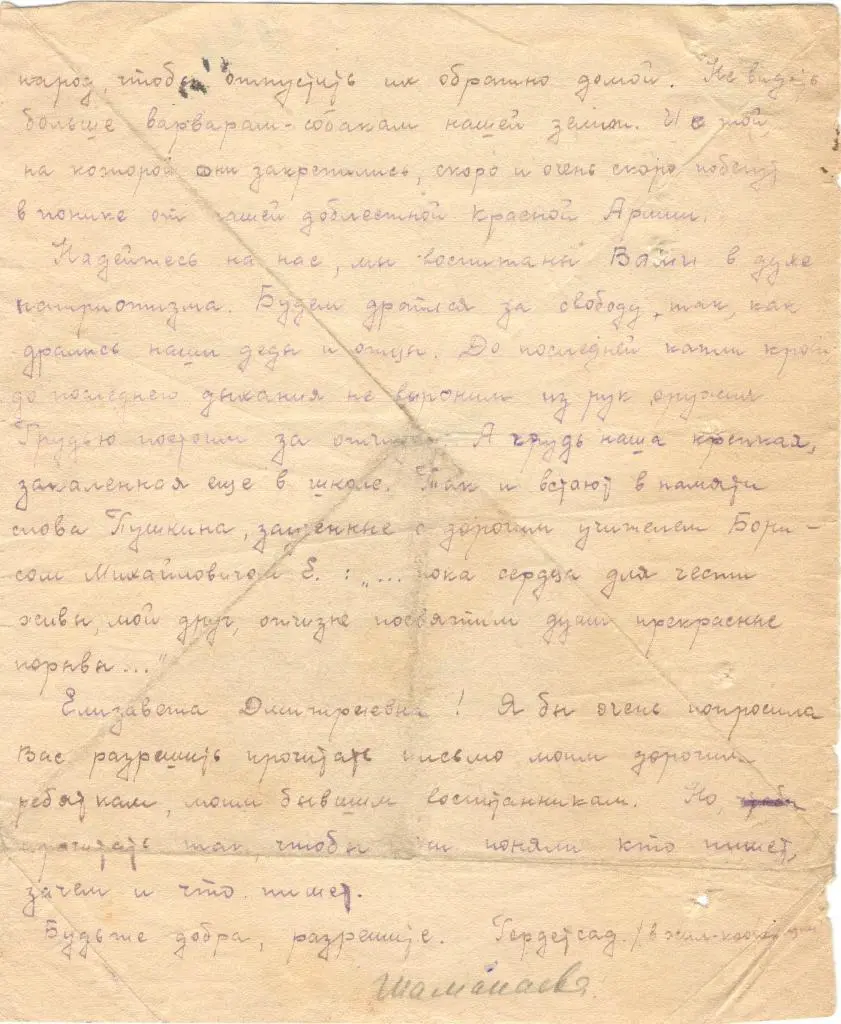 народ, чтобы отпустить их обратно домой. Не видать
больше варварам-собакам нашей земли. И с той
на которой они закрепились, скоро и очень скоро побегут
в панике от нашей доблестной Красной Армии.
Надейтесь на нас, мы воспитаны Вами в духе
патриотизма. Будем драться за свободу, так, как
дрались наши деды и отцы. До последней капли крови
до последнего дыхания не выроним из рук оружия
Грудью постоим за отчизну. А грудь наша крепкая,
закаленная еще в школе. Так и встают в памяти
слова Пушкина, заученные с дорогим учителем Бори-
сом Михайловичем Е. : „... пока сердца для чести
живы, мой друг, отчизне посвятим души прекрасные
порывы..."
Елизавета Дмитриевна! Я бы очень попросила
Вас разрешить прочитать письмо моим дорогим
ребяткам, моим бывшим воспитанникам. Но,
прочитать так, чтобы они поняли кто пишет,
зачем и что пишет.
Будьте добра, разрешите. Гордетсад /в
Шаманаева